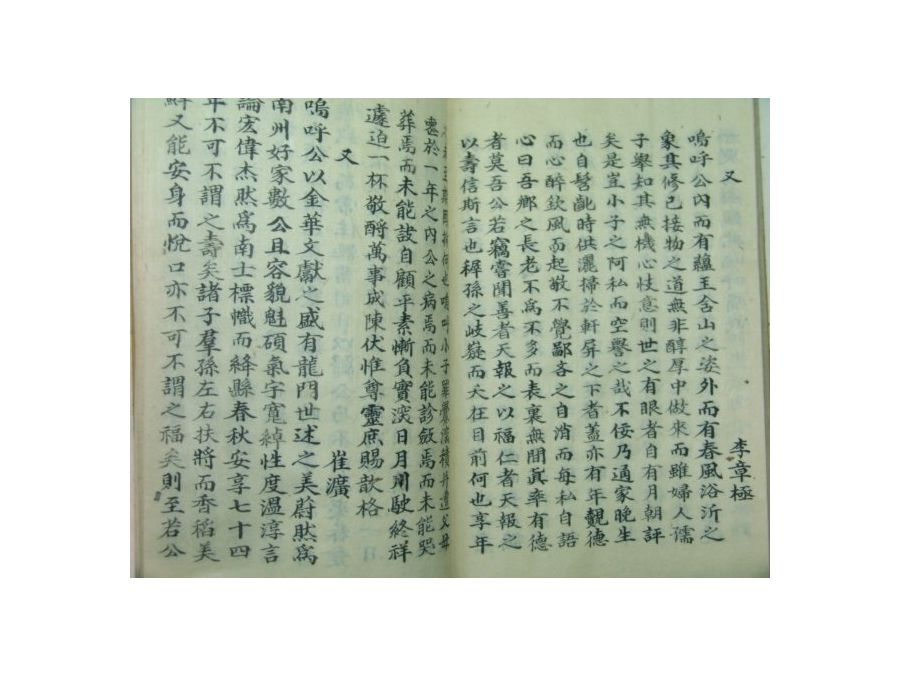 又
李章極
嗚呼公內而有蘊玉舍山之姿外而有春風浴沂之
象其修已接物之道無非醇厚中做來而雖婦人孺
子舉知其無機心忮意則世之有眼者自有月朝評
矣是豈小子之阿私而空譽之哉不佞乃通家晚生
也自髫齔時供灑掃於軒屏之下者蓋亦有年觀德
而心醉欽風而起敬不覺鄙吝之自消而每私自語
心曰吾鄉之長老不為不多而表裏無間眞率有德
者莫吾公若竊嘗聞善者天報之以福仁者天報之
以壽信斯言也穉孫之岐嶷而夭在目前何也享年
嗚呼小子罪釁積父母
喪於一年之內公之病焉而未能診斂焉而未能哭
葬焉而未能訣自顧平素慚負實深日月駛終祥
遽迫一杯敬酹萬事成陳伏惟尊靈庶賜歆格
又
崔濱
嗚呼公以金華文獻之盛有龍門世述之美蔚然爲
南州好家數公且容貌魁碩氣宇寬綽性度溫淳言
論宏偉杰然爲南士標幟而絳縣春秋安享七十四
年不可不謂之壽矣諸子羣孫左右扶將而香稻美
鮮又能安身而悅口亦不可不謂之福矣則至若公